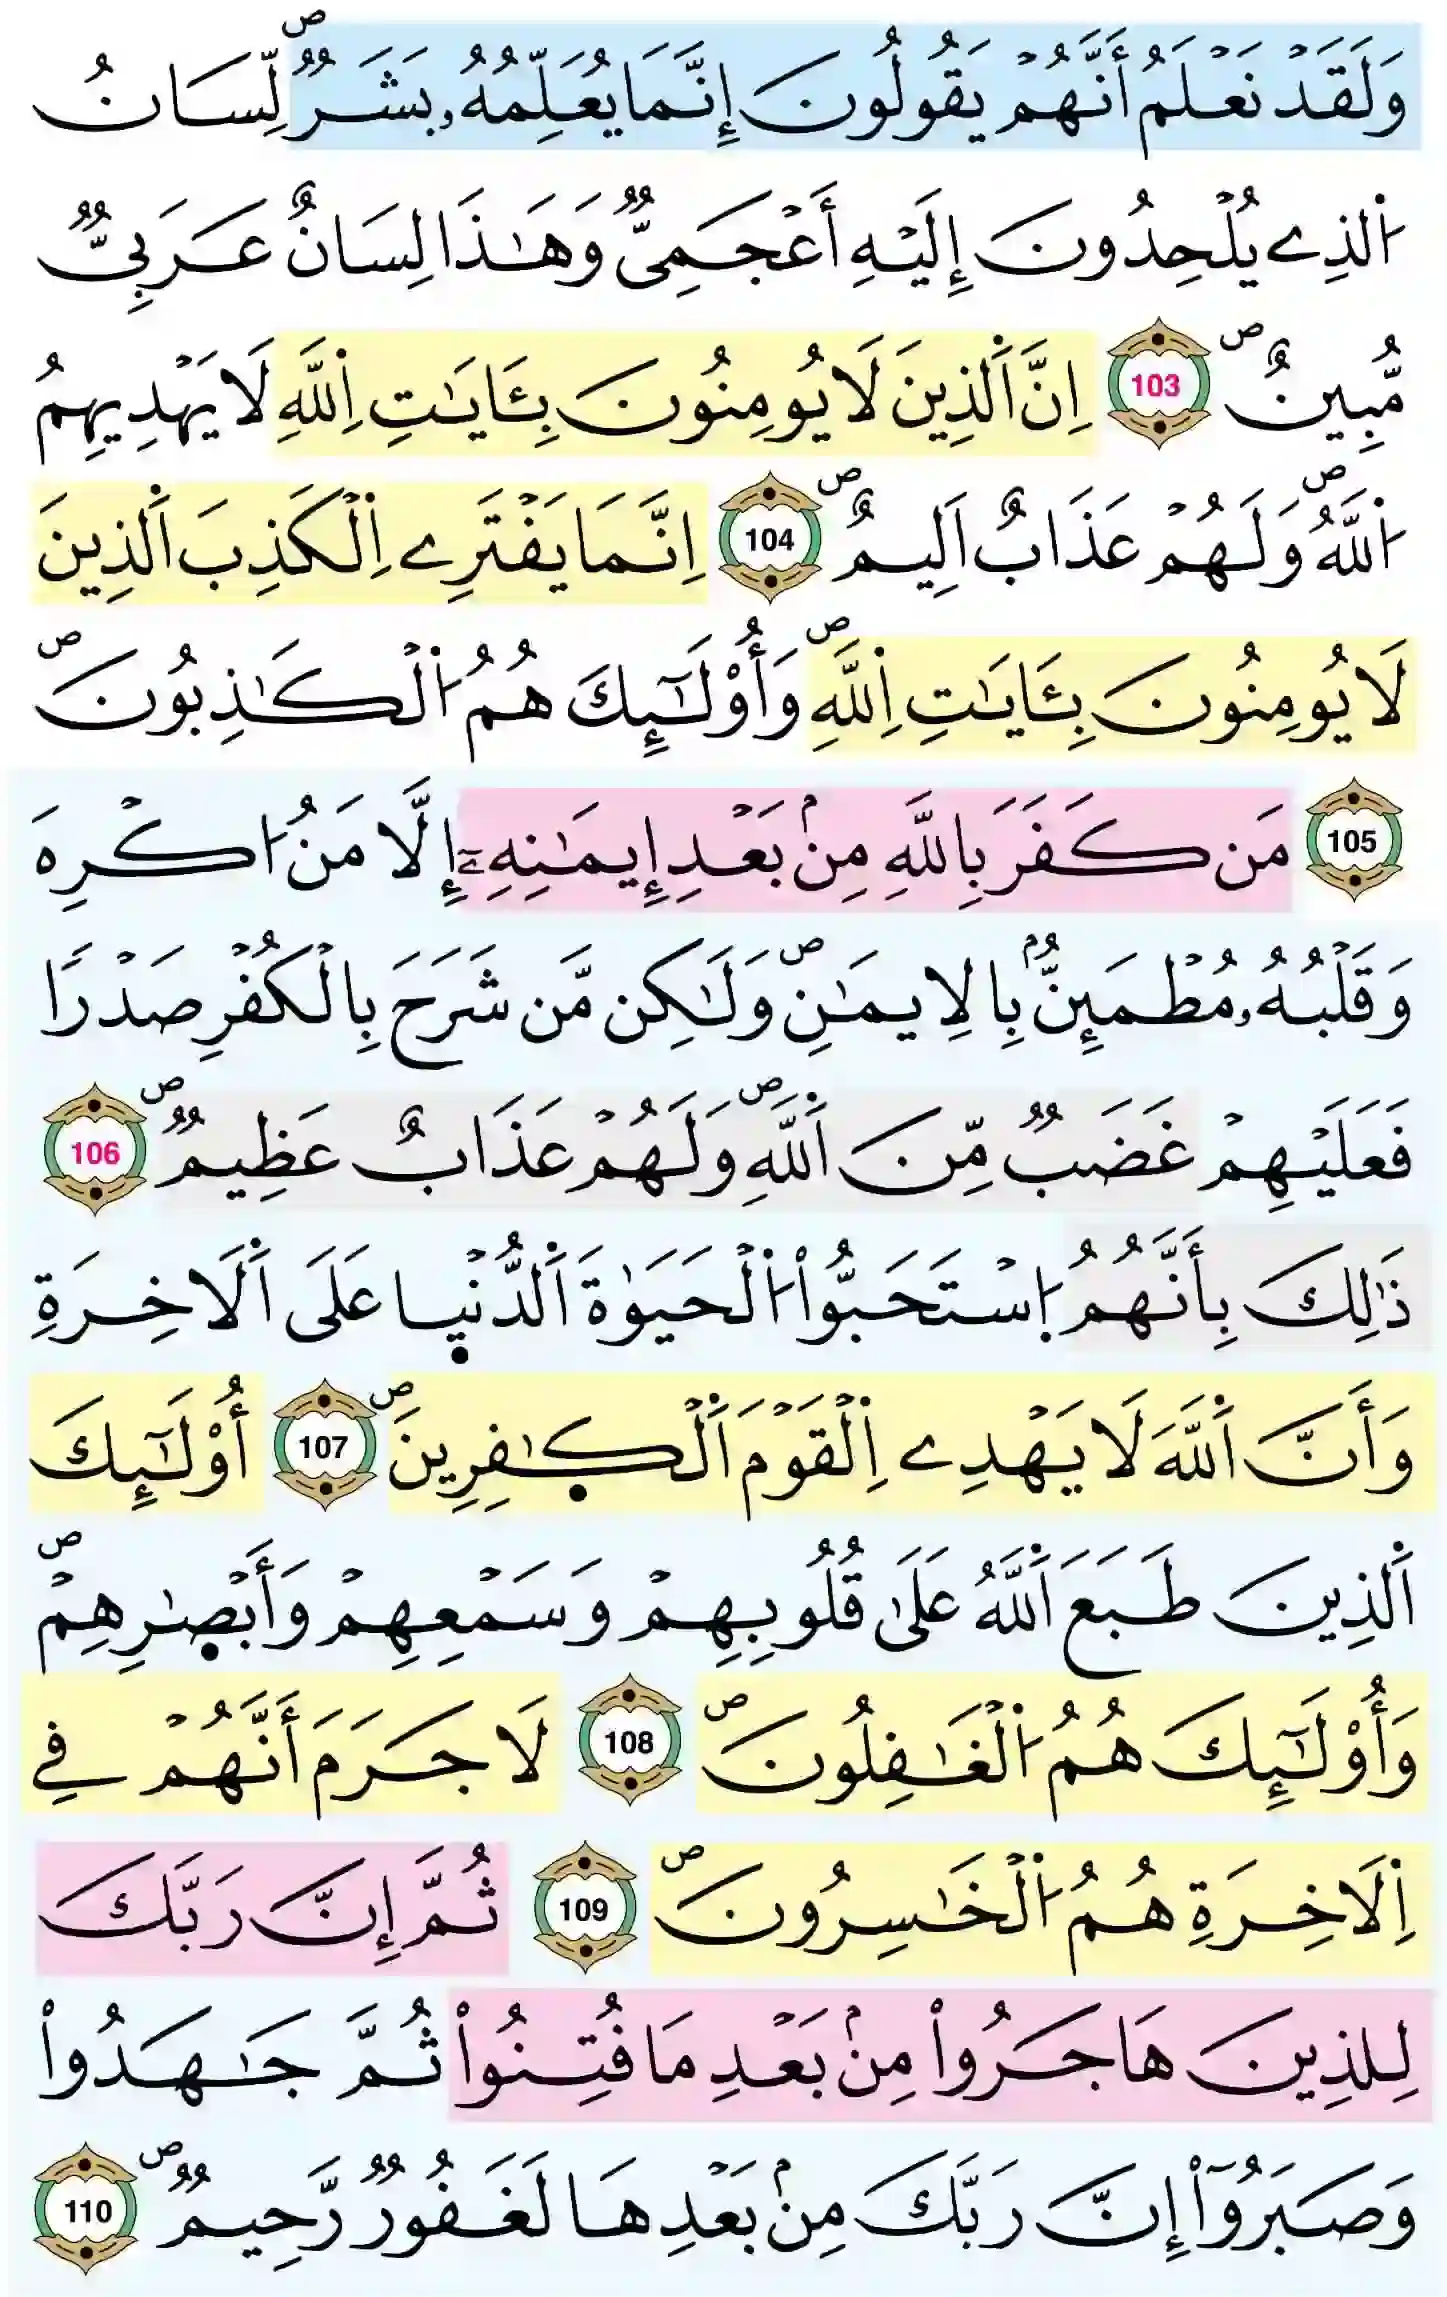 وَلَقَدْ نَعْلَمُ أَنَّهُمْ يَقُولُونَ إِنَّمَا يُعَلِّمُهُۥ بَشَرٌۖ لِّسَانُ
اُ۬لذِے يُلْحِدُونَ إِلَيْهِ أَعْجَمِيٌّ وَهَٰذَا لِسَانٌ عَرَبِيٌّ
مُّبِينٌۖ 103 اِنَّ اَ۬لذِينَ لَا يُومِنُونَ بِـَٔايَٰتِ اِ۬للَّهِ لَا يَهْدِيهِمُ
اُ۬للَّهُۖ وَلَهُمْ عَذَابٌ اَلِيمٌۖ 104 اِنَّمَا يَفْتَرِے اِ۬لْكَذِبَ اَ۬لذِينَ
لَا يُومِنُونَ بِـَٔايَٰتِ اِ۬للَّهِۖ وَأُوْلَٰٓئِكَ هُمُ اُ۬لْكَٰذِبُونَۖ
105 مَن كَفَرَ بِاللَّهِ مِنۢ بَعْدِ إِيمَٰنِهِۦٓ إِلَّا مَنُ ا۟كْرِهَ
وَقَلْبُهُۥ مُطْمَئِنٌّۢ بِالِايمَٰنِۖ وَلَٰكِن مَّن شَرَحَ بِالْكُفْرِ صَدْرًا
فَعَلَيْهِمْ غَضَبٌ مِّنَ اَ۬للَّهِۖ وَلَهُمْ عَذَابٌ عَظِيمٌۖ 106
ذَٰلِكَ بِأَنَّهُمُ اُ۪سْتَحَبُّواْ اُ۬لْحَيَوٰةَ اَ۬لدُّنْي۪ا عَلَى اَ۬لَاخِرَةِ
وَأَنَّ اَ۬للَّهَ لَا يَهْدِے اِ۬لْقَوْمَ اَ۬لْكٰ۪فِرِينَۖ 107 أُوْلَٰٓئِكَ
اَ۬لذِينَ طَبَعَ اَ۬للَّهُ عَلَىٰ قُلُوبِهِمْ وَسَمْعِهِمْ وَأَبْصٰ۪رِهِمْۖ
وَأُوْلَٰٓئِكَ هُمُ اُ۬لْغَٰفِلُونَۖ 108 لَا جَرَمَ أَنَّهُمْ فِے
اِ۬لَاخِرَةِ هُمُ اُ۬لْخَٰسِرُونَۖ 109 ثُمَّ إِنَّ رَبَّكَ
لِلذِينَ هَاجَرُواْ مِنۢ بَعْدِ مَا فُتِنُواْ ثُمَّ جَٰهَدُواْ
وَصَبَرُوٓاْ إِنَّ رَبَّكَ مِنۢ بَعْدِهَا لَغَفُورٌ رَّحِيمٌۖ 110